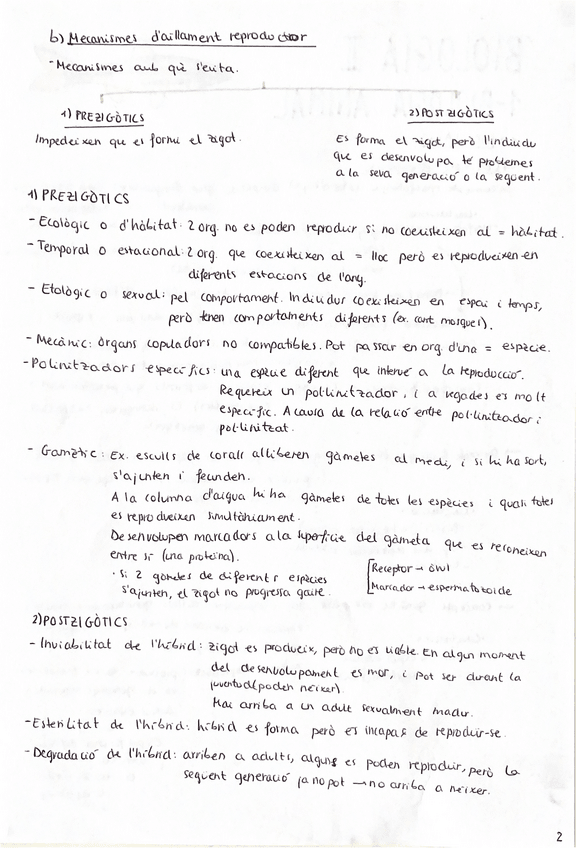 b) Mecanismes d'aïllament reproductor
- Mecanismes amb què s'evita.
1) PREZIGÒTICS
Impedeixen que es formi el zigot.
2) POSTZIGÒTICS
Es forma el zigot, però l'individu
que es desenvolupa té problemes
a la seva generació o la següent.
1) PREZIGÒTICS
- Ecològic o d'hàbitat: 2 org. no es poden reproduir si no coexisteixen al = hàbitat.
- Temporal o estacional: 2 org. que coexisteixen al = lloc però es reprodueixen en
diferents estacions de l'any.
- Etològic o sexual: pel comportament. Individus coexisteixen en espai i temps,
però tenen comportaments diferents (ex. cant mosques).
- Mecànic: òrgans copuladors no compatibles. Pot passar en org. d'una = espècie.
- Pol·linitzadors específics: una espècie diferent que intervé a la reproducció.
Requereix un pol·linitzador, i a vegades es molt
específic. A causa de la relació entre pol·linitzador i
pol·linitzat.
- Gamètic: Ex. esculls de corall alliberen gàmetes al medi, i si hi ha sort,
s'ajunten i fecunden.
A la columna d'aigua hi ha gàmetes de totes les espècies i quasi totes
es reprodueixen simultàniament.
Desenvolupen marcadors a la superfície del gàmeta que es reconeixen
entre si (una proteïna).
· Si 2 gàmetes de diferents espècies
s'ajunten, el zigot no progressa gaire.
Receptor → òvul
Marcador → espermatozoide
2) POSTZIGÒTICS
- Inviabilitat de l'híbrid: zigot es produeix, però no es viable. En algun moment
del desenvolupament es mor, i pot ser durant la
juventud (poden néixer).
Mai arriba a un adult sexualment madur.
- Esterilitat de l'híbrid: híbrid es forma però es incapaç de reproduir-se.
- Degradació de l'híbrid: arriben a adults, alguns es poden reproduir, però la
següent generació ja no pot → no arriba a néixer.
2